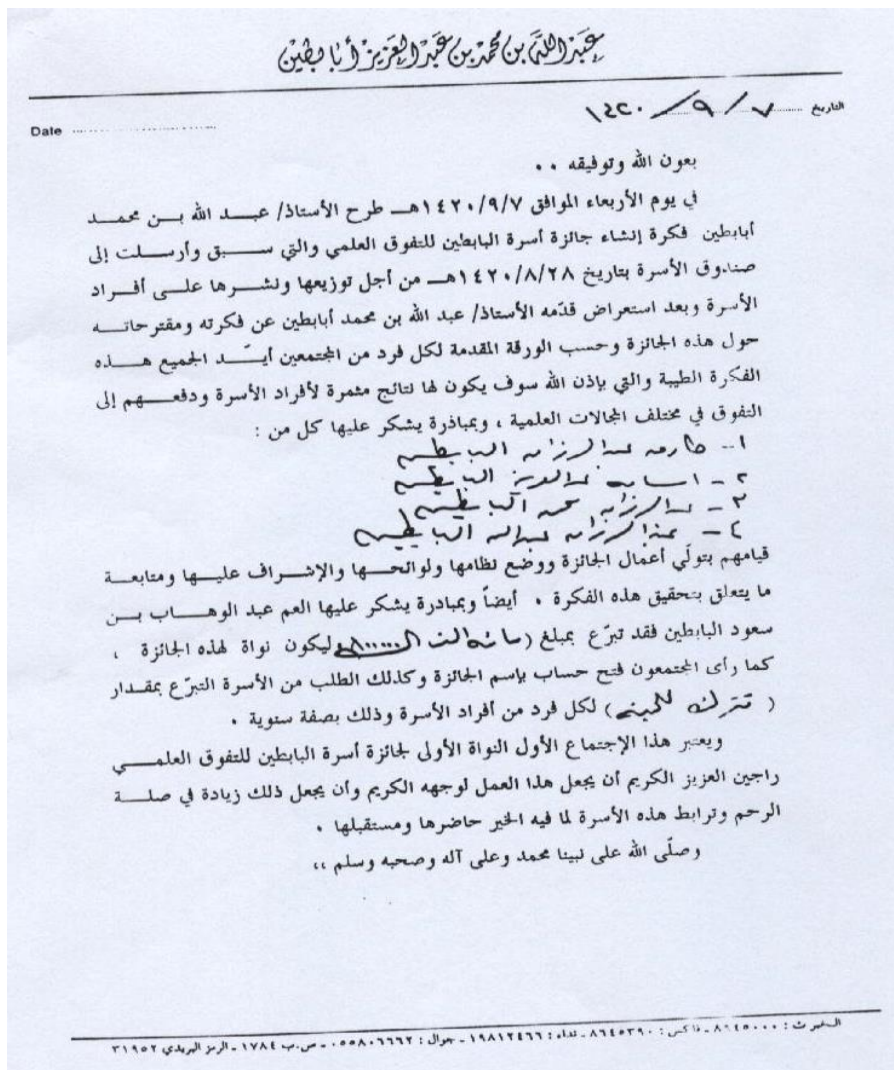 عبد الله بن محمد بن عبد العزيز أبابطين
التاريخ ٧ / ٩ / ١٤٢٠
Date
بعون الله وتوفيقه ..
في يوم الأربعاء الموافق ١٤٢٠/٩/٧هــ طرح الأستاذ/ عبد الله بن محمد
أبابطين فكرة إنشاء جائزة أسرة البابطين للتفوق العلمي والتي سبق وأرسلت إلى
صندوق الأسرة بتاريخ ١٤٢٠/٨/٢٨هــ من أجل توزيعها ونشرها على أفراد
الأسرة وبعد استعراض قدّمه الأستاذ/ عبد الله بن محمد أبابطين عن فكرته ومقترحاته
حول هذه الجائزة وحسب الورقة المقدمة لكل فرد من المجتمعين أيّد الجميع هذه
الفكرة الطيبة والتي بإذن الله سوف يكون لها نتائج مثمرة لأفراد الأسرة ودفعهم إلى
التفوق في مختلف المجالات العلمية ، وبمباذرة يشكر عليها كل من :
١- طارق عبدالرزاق البابطين
٢- اسامه عبدالعزيز البابطين
٣- عبدالرزاق محمد البابطين
٤- عبدالرزاق عبدالله البابطين
قيامهم بتولّي أعمال الجائزة ووضع نظامها ولوائحها والإشراف عليها ومتابعة
ما يتعلق بتحقيق هذه الفكرة . أيضاً وبمبادرة يشكر عليها العم عبد الوهاب بن
سعود البابطين فقد تبرّع بمبلغ ( مائة الف ليكون نواة لهذه الجائزة ،
كما رأى المجتمعون فتح حساب بإسم الجائزة وكذلك الطلب من الأسرة التبرّع بمقدار
( تترك للجنة ) لكل فرد من أفراد الأسرة وذلك بصفة سنوية .
ويعتبر هذا الإجتماع الأول النواة الأولى لجائزة أسرة البابطين للتفوق العلمي
راجين العزيز الكريم أن يجعل هذا العمل لوجهه الكريم وأن يجعل ذلك زيادة في صلة
الرحم وترابط هذه الأسرة لما فيه الخير حاضرها ومستقبلها .
وصلّى الله على نبينا محمد وعلى آله وصحبه وسلم ،،
الخبر ت : ٨٦٤٥٠٠٠ - فاكس : ٨٦٤٥٣٩٠ - نداء : ١٩٨١٢٤٦٦ - جوال : ٠٥٥٨٠٦٦٦٢ - ص.ب ١٧٨٤ - الرمز البريدي ٣١٩٥٢